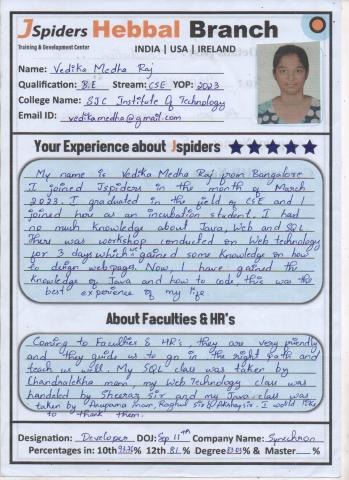 JSpiders Hebbal Branch
Training & Development Center
INDIA | USA | IRELAND
Name: Vedika Medha Raj
Qualification: B.E Stream: CSE YOP: 2023
College Name: SJC Institute of Technology
Email ID: vedikamedha@gmail.com
Your Experience about Jspiders
My name is Vedika Medha Raj from Bangalore
I joined Jspiders in the month of March
2023. I graduated in the field of CSE and I
joined here as an incubation student. I had
no much knowledge about Java, Web and SQL
There was workshop conducted on Web technology
for 3 days which we gained some knowledge on how
to design webpages. Now, I have gained the
knowledge of Java and how to code, this was the
best experience of my life
About Faculties & HR's
Coming to Faculties & HR's, they are very friendly
and they guide us to go in the right path and
teach us well. My SQL class was taken by
Chandralekha mam, my Web Technology class was
handeled by Sheeraz Sir and my Java class was
taken by Anupama mam, Raghu Sir & Akshay sir. I would like
to thank them.
Designation: Developer DOJ: Sep 11th Company Name: Synechron
Percentages in: 10th % 12th 81 % Degree % & Master %